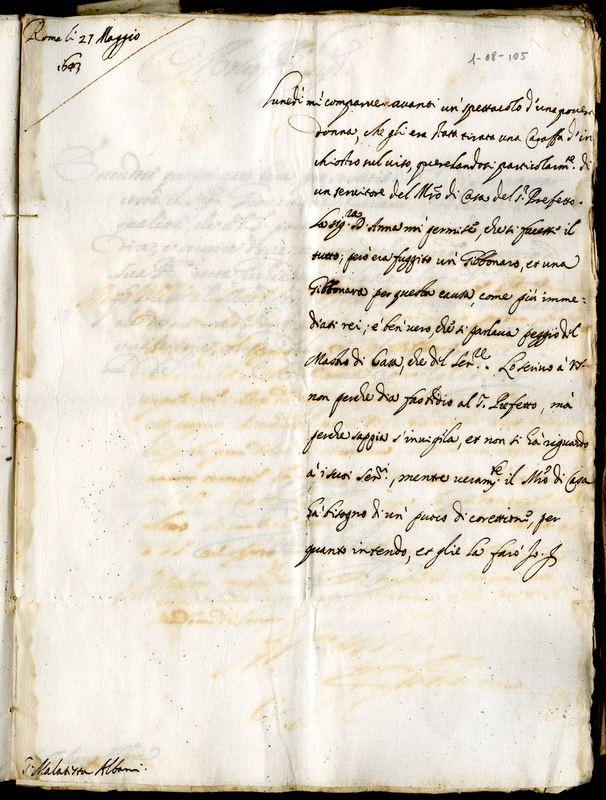 Roma li 27 Maggio
1643
1-08-105
Lunedi mi comparve avanti un' spettacolo d'una povera
donna, che gli era stata tirata una Caraffa d'in
chiostro sul viso, querelandosi particolarm.te di
un servitore del M.ro di Casa del S.r Prefetto.
La Sig.ra D. Anna mi permise, che si facesse il
tutto; però era fuggito un' Gibbonaro, et una
Gibbonara per questa causa, come più imme-
diati rei; è ben vero, che si parlava peggio del
Mastro di Casa, che del Ser.re. Lo scrivo à V.S.
non perche dia fastidio al S. Prefetto, mà
perche sappia s'invigila, et non si hà riguardo
à i suoi Ser.ri, mentre veram.te il M.ro di Casa
hà bisogno di un' puoco di corettione, per
quanto intendo, et glie la farò Io.
S. Malatesta Albani.